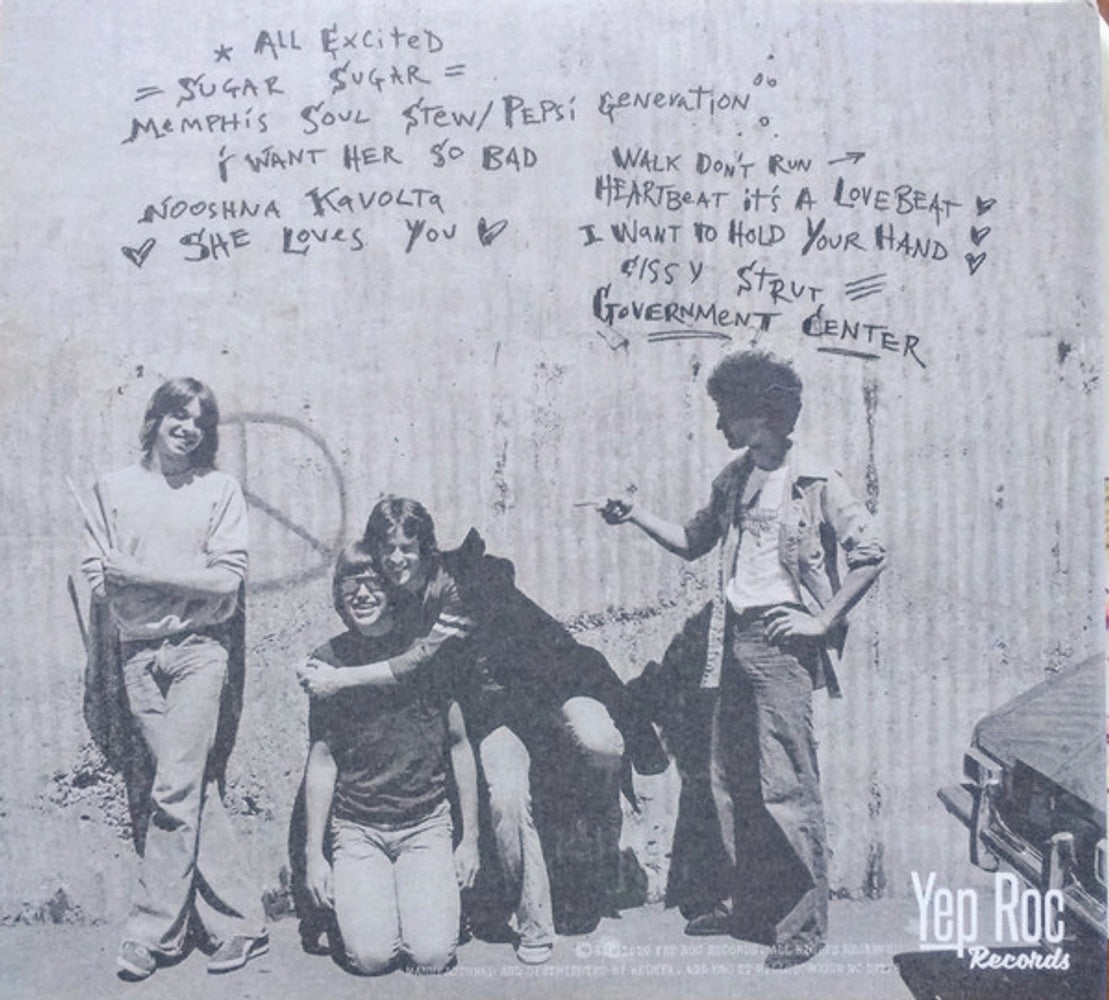 * ALL EXCITED
= SUGAR SUGAR =
MEMPHIS SOUL STEW/PEPSI GENERATION
I WANT HER SO BAD
NOOSHNA KAVOLTA
SHE LOVES YOU
WALK DON'T RUN →
HEARTBEAT IT'S A LOVEBEAT
I WANT TO HOLD YOUR HAND
CISSY STRUT
GOVERNMENT CENTER
Yep Roc
Records
YEP ROC RECORDS. ALL RIGHTS RESERVED
MANUFACTURED AND DISTRIBUTED BY REDEYE,